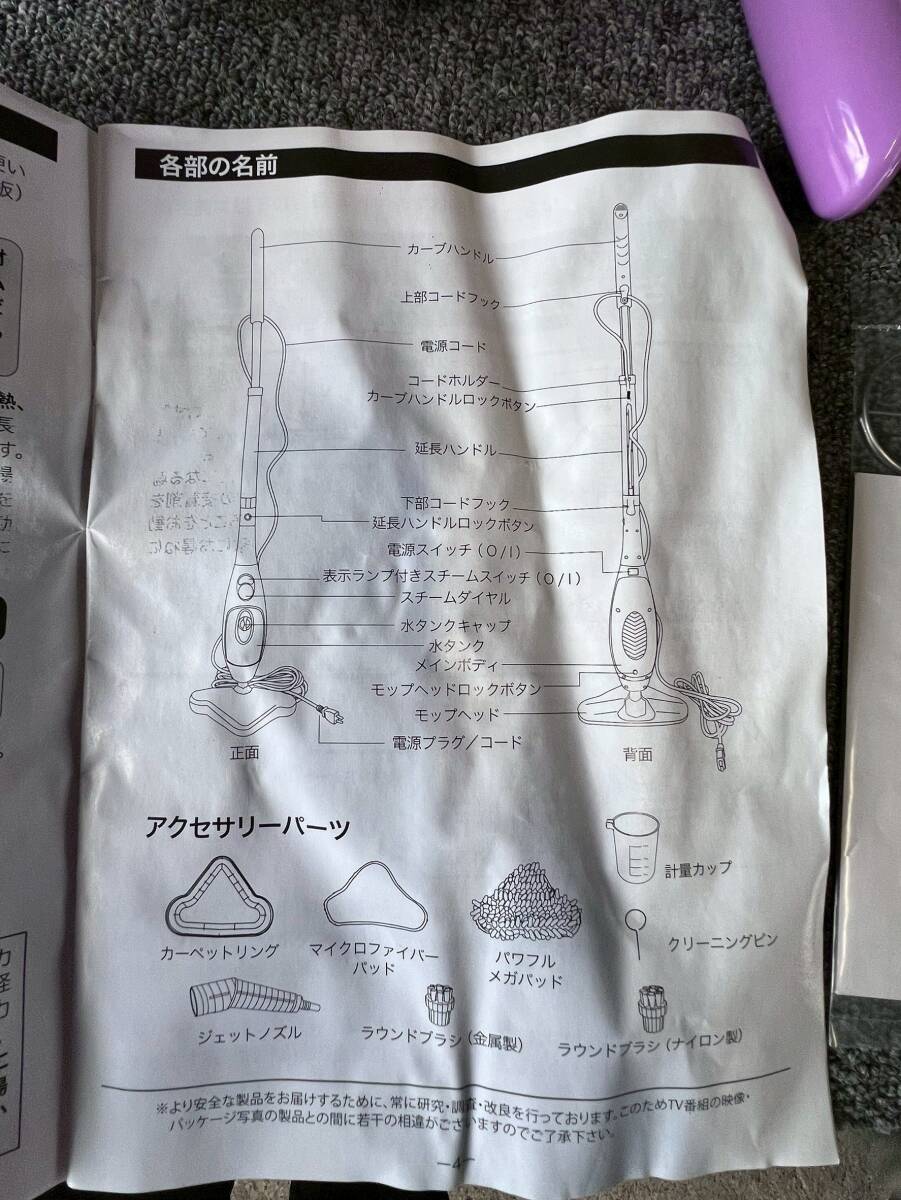 各部の名前
カーブハンドル
上部コードフック
電源コード
コードホルダー
カーブハンドルロックボタン
延長ハンドル
下部コードフック
延長ハンドルロックボタン
電源スイッチ(O/I)
表示ランプ付きスチームスイッチ(O/I)
スチームダイヤル
水タンクキャップ
水タンク
メインボディ
モップヘッドロックボタン
モップヘッド
電源プラグ/コード
正面
背面
アクセサリーパーツ
計量カップ
カーペットリング
マイクロファイバー
パッド
パワフル
メガパッド
クリーニングピン
ジェットノズル
ラウンドブラシ(金属製)
ラウンドブラシ(ナイロン製)
※より安全な製品をお届けするために、常に研究・調査・改良を行っております。このためTV番組の映像・
パッケージ写真の製品との間に若干の相違がございますのでご了承下さい。
—4—